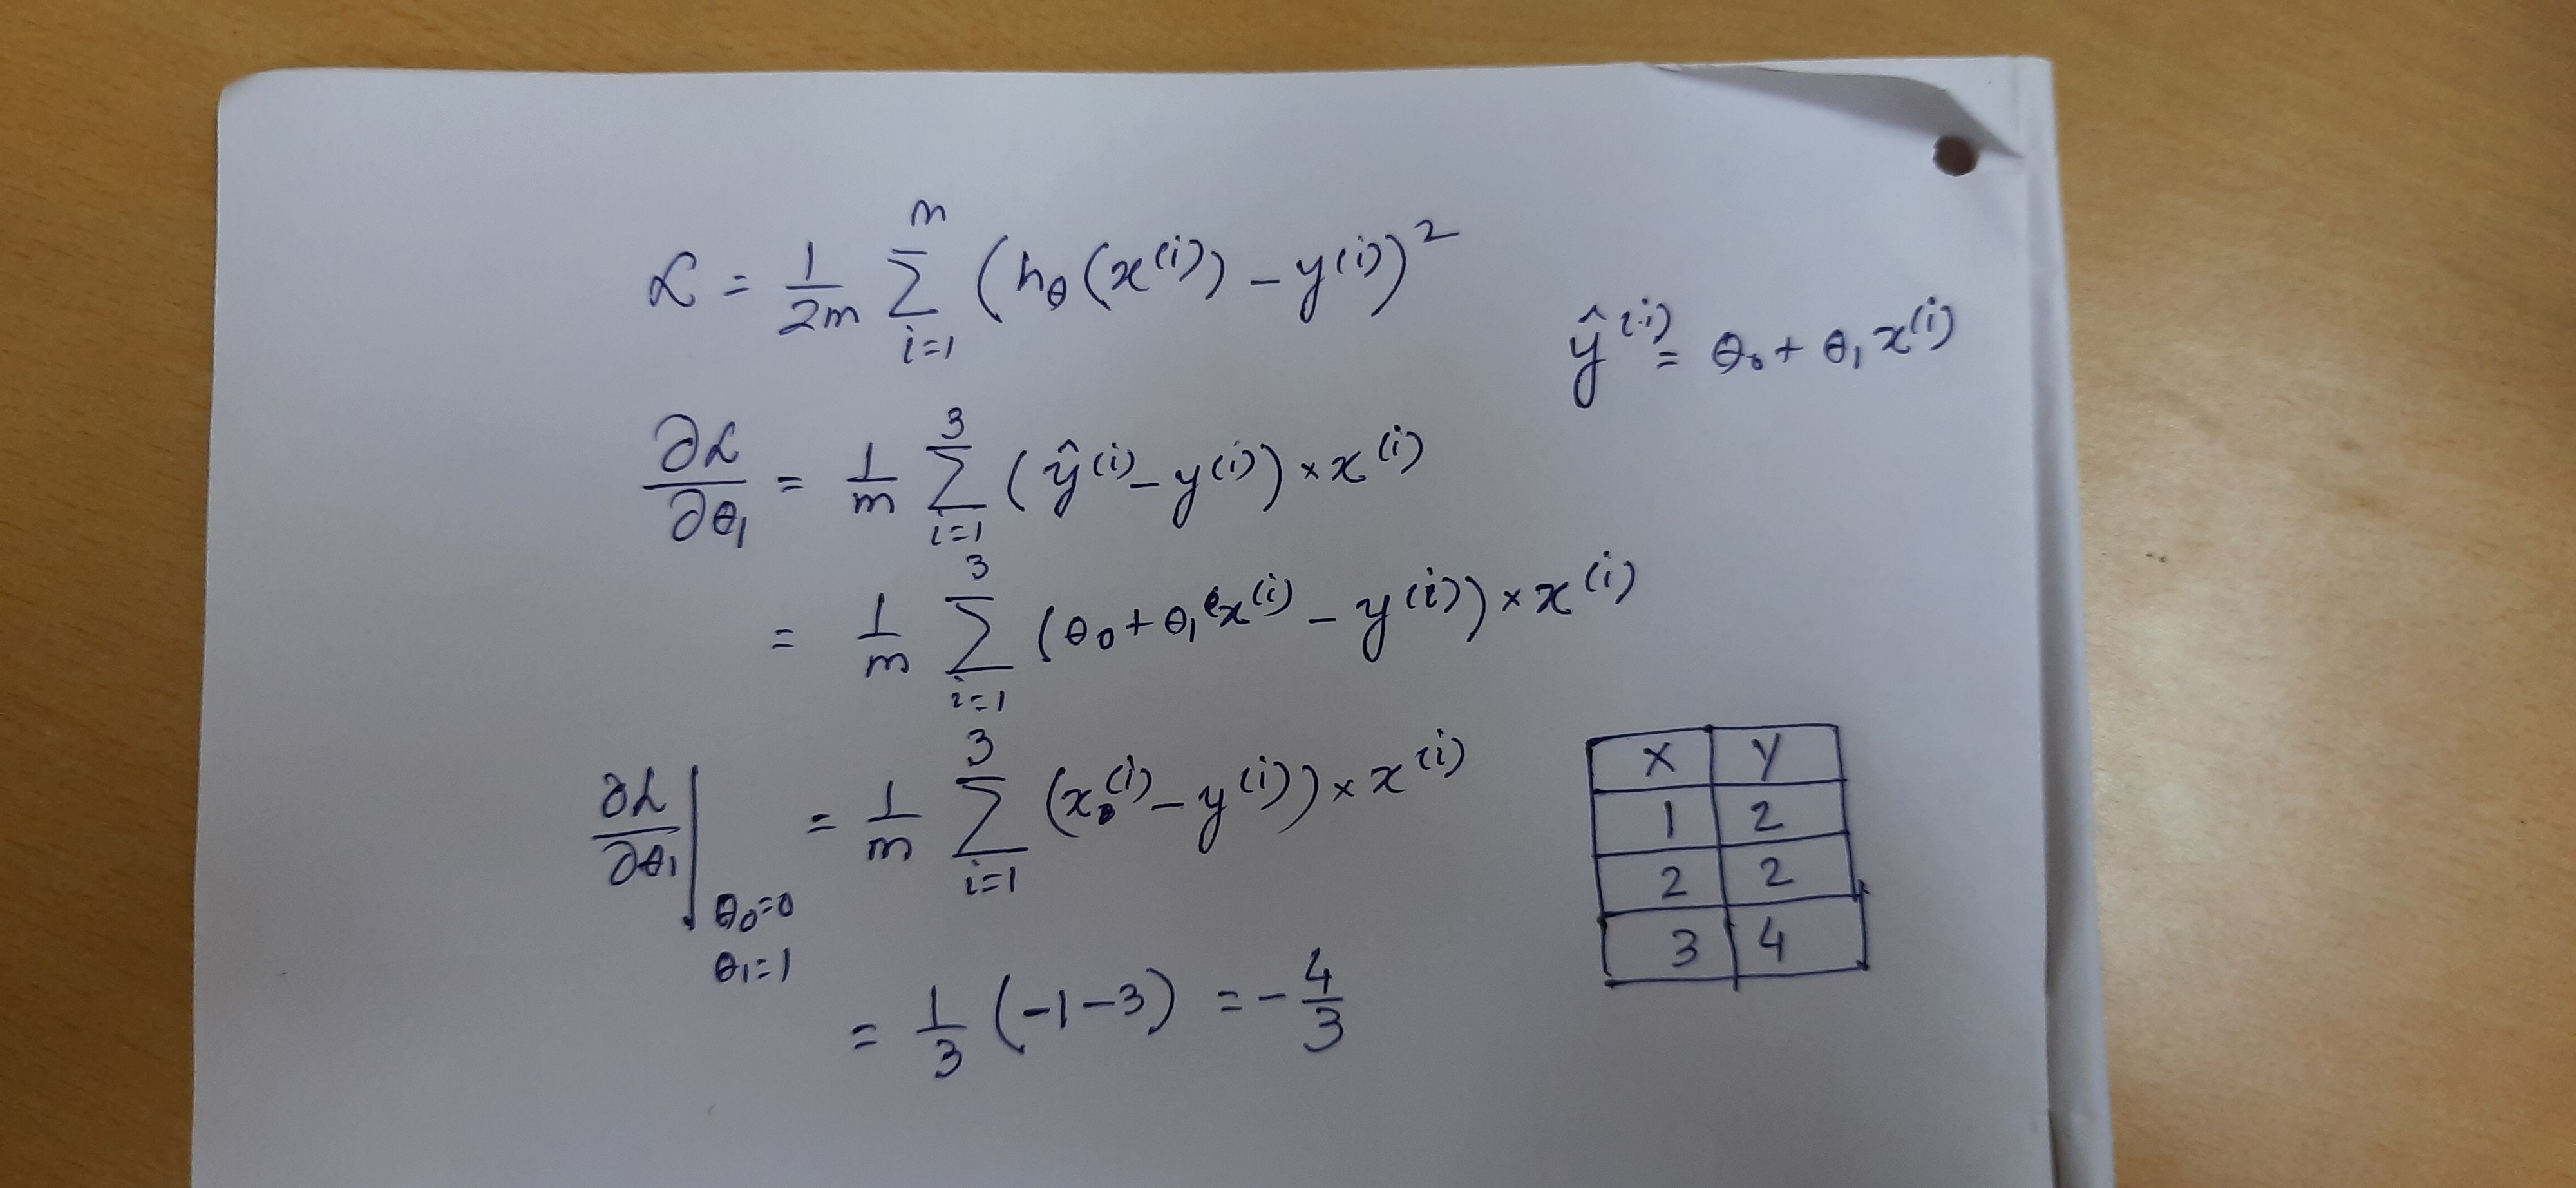 ℒ = 1/2m ∑_{i=1}^{m} (h_θ(x^(i)) - y^(i))^2
ŷ^(i) = θ₀ + θ₁ x^(i)
∂ℒ/∂θ₁ = 1/m ∑_{i=1}^{3} (ŷ^(i) - y^(i)) × x^(i)
= 1/m ∑_{i=1}^{3} (θ₀ + θ₁ x^(i) - y^(i)) × x^(i)
∂ℒ/∂θ₁ |_{θ₀=0, θ₁=1} = 1/m ∑_{i=1}^{3} (x^(i) - y^(i)) × x^(i)
= 1/3 (-1-3) = -4/3
X Y
1 2
2 2
3 4